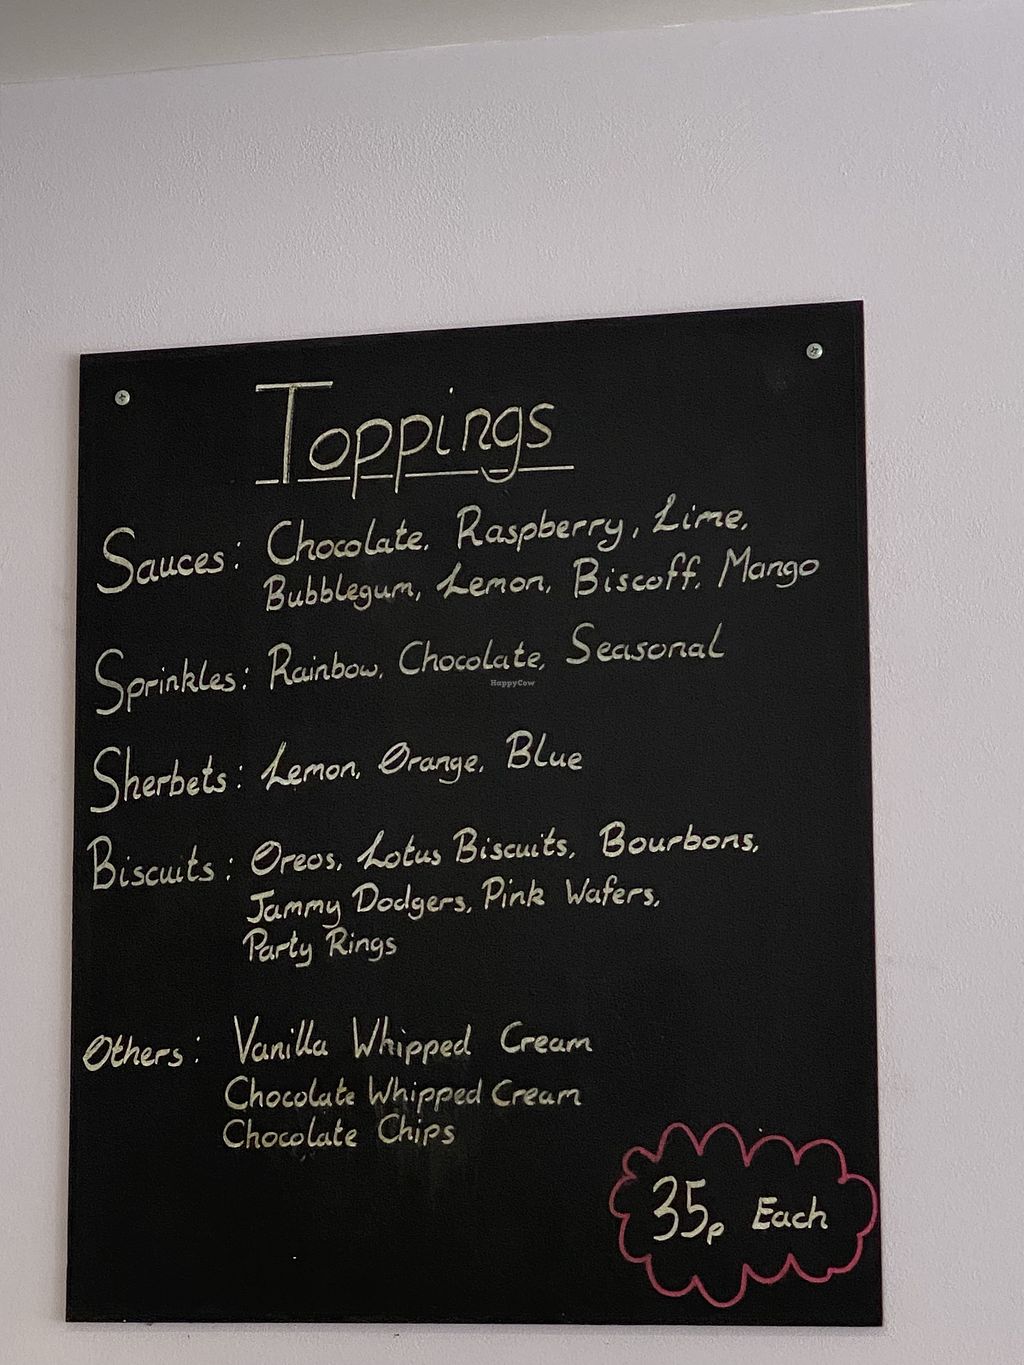 Toppings
Sauces: Chocolate, Raspberry, Lime,
Bubblegum, Lemon, Biscoff, Mango
Sprinkles: Rainbow, Chocolate, Seasonal
HappyCow
Sherbets: Lemon, Orange, Blue
Biscuits: Oreos, Lotus Biscuits, Bourbons,
Jammy Dodgers, Pink Wafers,
Party Rings
Others: Vanilla Whipped Cream
Chocolate Whipped Cream
Chocolate Chips
35p Each